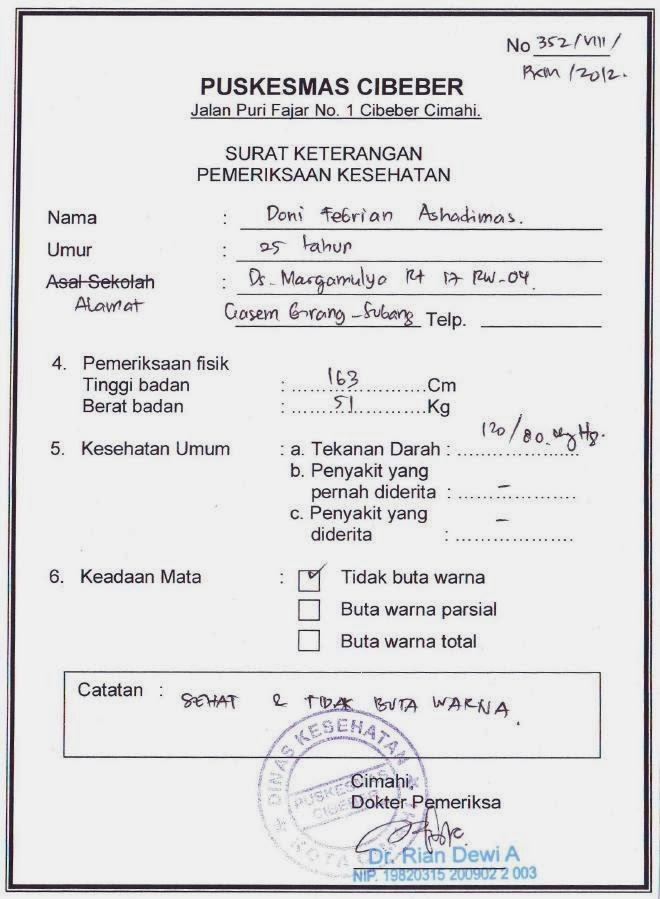 No 352/VIII/
PKM/2012.
PUSKESMAS CIBEBER
Jalan Puri Fajar No. 1 Cibeber Cimahi.
SURAT KETERANGAN
PEMERIKSAAN KESEHATAN
Nama : Doni Febrian Ashadimas.
Umur : 25 tahun
Asal Sekolah : Ds. Margamulyo Rt 17 RW-04.
Alamat Ciasem Girang - Subang Telp.
4. Pemeriksaan fisik
Tinggi badan : 163 Cm
Berat badan : 51 Kg
5. Kesehatan Umum : a. Tekanan Darah : 120/80 mmHg.
b. Penyakit yang
pernah diderita : -
c. Penyakit yang
diderita : -
6. Keadaan Mata : ✓ Tidak buta warna
Buta warna parsial
Buta warna total
Catatan : SEHAT & TIDAK BUTA WARNA.
DINAS KESEHATAN
PUSKESMAS
CIBEBER
KOTA
Cimahi,
Dokter Pemeriksa
Dr. Rian Dewi A
NIP. 19820315 200902 2 003